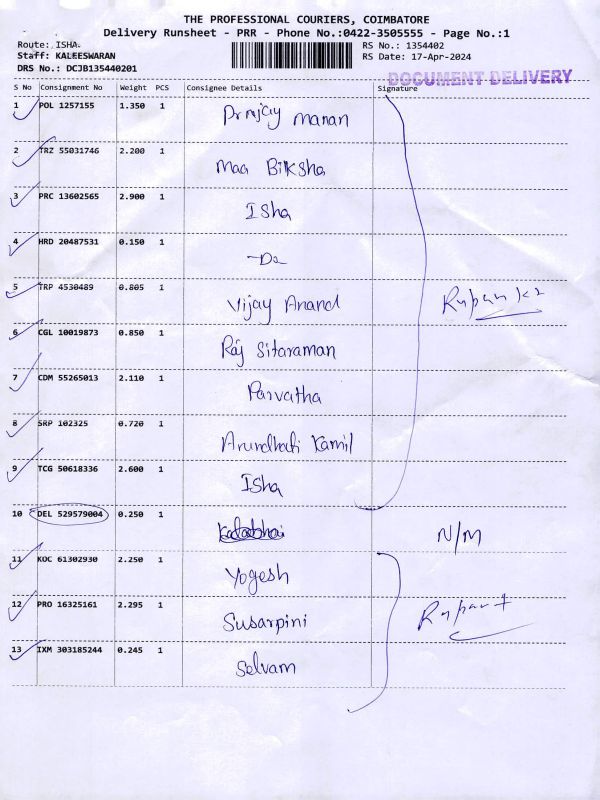 THE PROFESSIONAL COURIERS, COIMBATORE
Delivery Runsheet - PRR - Phone No.:0422-3505555 - Page No.:1
Route: ISHA. RS No.: 1354402
Staff: KALEESWARAN RS Date: 17-Apr-2024
DRS No.: DCJB135440201
DOCUMENT DELIVERY
S No Consignment No Weight PCS Consignee Details Signature
1 POL 1257155 1.350 1 Manan
2 TRZ 55031746 2.200 1 Maa Biksha
3 PRC 13602565 2.900 1 Isha
4 HRD 20487531 0.150 1 -Do
5 TRP 4530489 0.805 1 Vijay Anand
6 CGL 10019873 0.850 1 Raj Sitaraman
7 CDM 55265013 2.110 1 Parvatha
8 SRP 102325 0.720 1 Arundhati Kamil
9 TCG 50618336 2.600 1 Isha
10 DEL 529579004 0.250 1 N/M
11 KOC 61302930 2.250 1 Yogesh
12 PRO 16325161 2.295 1 Susarpini
13 IXM 303185244 0.245 1 Selvam